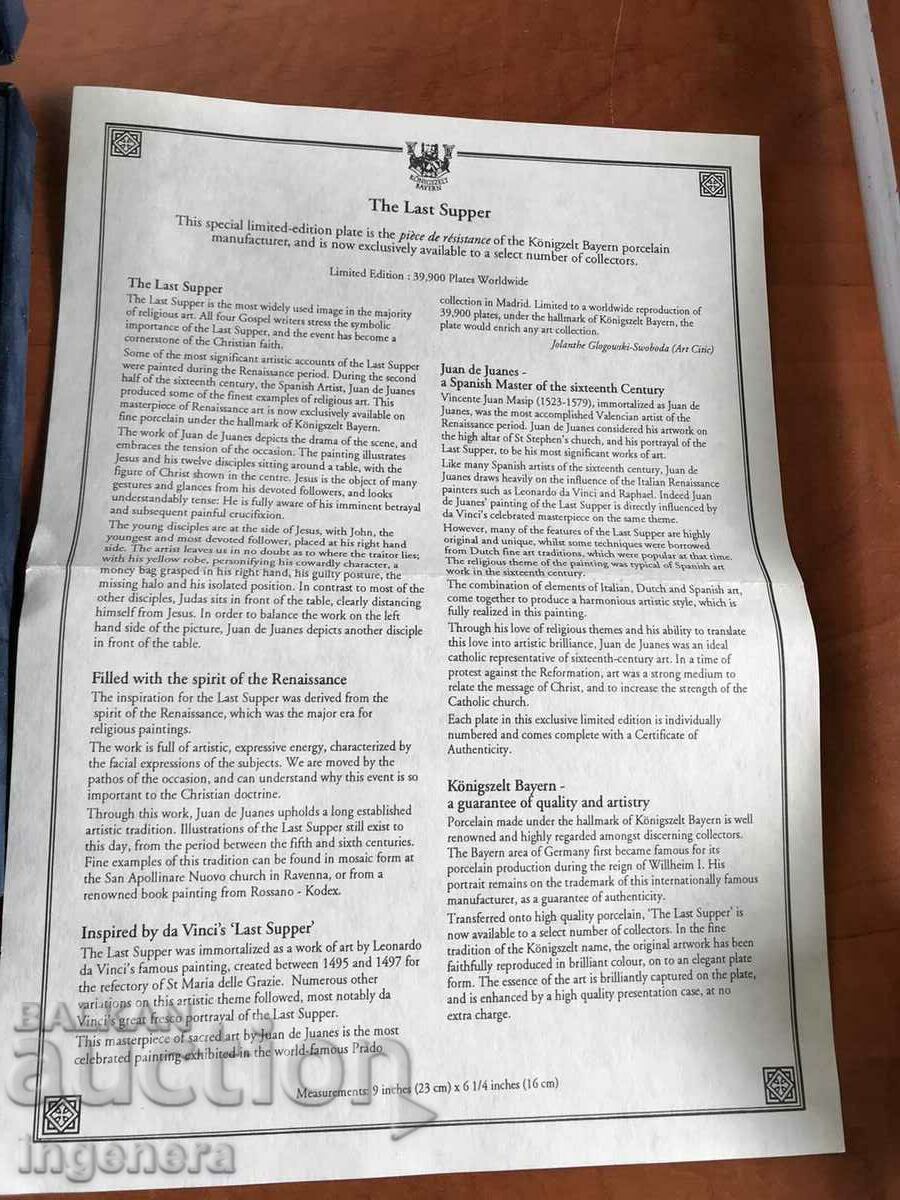 KÖNIGSZELT
BAYERN
The Last Supper
This special limited-edition plate is the pièce de résistance of the Königzelt Bayern porcelain
manufacturer, and is now exclusively available to a select number of collectors.
Limited Edition : 39,900 Plates Worldwide
The Last Supper
The Last Supper is the most widely used image in the majority
of religious art. All four Gospel writers stress the symbolic
importance of the Last Supper, and the event has become a
cornerstone of the Christian faith.
Some of the most significant artistic accounts of the Last Supper
were painted during the Renaissance period. During the second
half of the sixteenth century, the Spanish Artist, Juan de Juanes
produced some of the finest examples of religious art. This
masterpiece of Renaissance art is now exclusively available on
fine porcelain under the hallmark of Königszelt Bayern.
The work of Juan de Juanes depicts the drama of the scene, and
embraces the tension of the occasion. The painting illustrates
Jesus and his twelve disciples sitting around a table, with the
figure of Christ shown in the centre. Jesus is the object of many
gestures and glances from his devoted followers, and looks
understandably tense: He is fully aware of his imminent betrayal
and subsequent painful crucifixion.
The young disciples are at the side of Jesus, with John, the
youngest and most devoted follower, placed at his right hand
side. The artist leaves us in no doubt as to where the traitor lies;
with his yellow robe, personifying his cowardly character, a
money bag grasped in his right hand, his guilty posture, the
missing halo and his isolated position. In contrast to most of the
other disciples, Judas sits in front of the table, clearly distancing
himself from Jesus. In order to balance the work on the left
hand side of the picture, Juan de Juanes depicts another disciple
in front of the table.
Filled with the spirit of the Renaissance
The inspiration for the Last Supper was derived from the
spirit of the Renaissance, which was the major era for
religious paintings.
The work is full of artistic, expressive energy, characterized by
the facial expressions of the subjects. We are moved by the
pathos of the occasion, and can understand why this event is so
important to the Christian doctrine.
Through this work, Juan de Juanes upholds a long established
artistic tradition. Illustrations of the Last Supper still exist to
this day, from the period between the fifth and sixth centuries.
Fine examples of this tradition can be found in mosaic form at
the San Apollinare Nuovo church in Ravenna, or from a
renowned book painting from Rossano - Kodex.
Inspired by da Vinci's 'Last Supper'
The Last Supper was immortalized as a work of art by Leonardo
da Vinci's famous painting, created between 1495 and 1497 for
the refectory of St Maria delle Grazie. Numerous other
variations on this artistic theme followed, most notably da
Vinci's great fresco portrayal of the Last Supper.
This masterpiece of sacred art by Juan de Juanes is the most
celebrated painting exhibited in the world-famous Prado
collection in Madrid. Limited to a worldwide reproduction of
39,900 plates, under the hallmark of Königszelt Bayern, the
plate would enrich any art collection.
Jolanthe Glogowski-Swoboda (Art Citic)
Juan de Juanes -
a Spanish Master of the sixteenth Century
Vincente Juan Masip (1523-1579), immortalized as Juan de
Juanes, was the most accomplished Valencian artist of the
Renaissance period. Juan de Juanes considered his artwork on
the high altar of St Stephen's church, and his portrayal of the
Last Supper, to be his most significant works of art.
Like many Spanish artists of the sixteenth century, Juan de
Juanes draws heavily on the influence of the Italian Renaissance
painters such as Leonardo da Vinci and Raphael. Indeed Juan
de Juanes' painting of the Last Supper is directly influenced by
da Vinci's celebrated masterpiece on the same theme.
However, many of the features of the Last Supper are highly
original and unique, whilst some techniques were borrowed
from Dutch fine art traditions, which were popular at that time.
The religious theme of the painting was typical of Spanish art
work in the sixteenth century.
The combination of elements of Italian, Dutch and Spanish art,
come together to produce a harmonious artistic style, which is
fully realized in this painting.
Through his love of religious themes and his ability to translate
this love into artistic brilliance, Juan de Juanes was an ideal
catholic representative of sixteenth-century art. In a time of
protest against the Reformation, art was a strong medium to
relate the message of Christ, and to increase the strength of the
Catholic church.
Each plate in this exclusive limited edition is individually
numbered and comes complete with a Certificate of
Authenticity.
Königszelt Bayern -
a guarantee of quality and artistry
Porcelain made under the hallmark of Königszelt Bayern is well
renowned and highly regarded amongst discerning collectors.
The Bayern area of Germany first became famous for its
porcelain production during the reign of Willheim I. His
portrait remains on the trademark of this internationally famous
manufacturer, as a guarantee of authenticity.
Transferred onto high quality porcelain, 'The Last Supper' is
now available to a select number of collectors. In the fine
tradition of the Königszelt name, the original artwork has been
faithfully reproduced in brilliant colour, on to an elegant plate
form. The essence of the art is brilliantly captured on the plate,
and is enhanced by a high quality presentation case, at no
extra charge.
Measurements: 9 inches (23 cm) x 6 1/4 inches (16 cm)
BALKAN
auction
ingenera